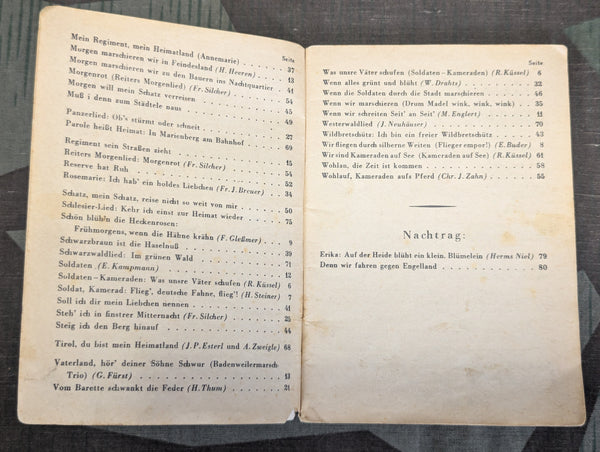 Seite
Mein Regiment, mein Heimatland (Annemarie) . . . . . 37
Morgen marschieren wir in Feindesland (H. Heeren) . . . 13
Morgen marschieren wir zu den Bauern ins Nachtquartier . . 41
Morgenrot (Reiters Morgenlied) (Fr. Silcher) . . . . . 54
Morgen will mein Schatz verreisen . . . . . 54
Muß i denn zum Städtele naus . . . . . 45
. . . . . 49
Panzerlied: Ob's stürmt oder schneit . . . . . 27
Parole heißt Heimat: In Marienberg am Bahnhof . . . . . 69
Regiment sein Straßen zieht . . . . . 15
Reiters Morgenlied: Morgenrot (Fr. Silcher) . . . . . 54
Reserve hat Ruh . . . . . 14
Rosemarie: Ich hab' ein holdes Liebchen (Fr. J. Breuer) . . 34
Schatz, mein Schatz, reise nicht so weit von mir . . . . . 50
Schlesier-Lied: Kehr ich einst zur Heimat wieder . . . . . 75
Schön blüh'n die Heckenrosen:
Frühmorgens, wenn die Hähne krähn (F. Gleßmer) . . . 9
Schwarzbraun ist die Haselnuß . . . . . 39
Schwarzwaldlied: Im grünen Wald . . . . . 71
Soldaten (E. Kampmann) . . . . . 12
Soldaten-Kameraden: Was unsre Väter schufen (R. Küssel) . 6
Soldat, Kamerad: Flieg', deutsche Fahne, flieg'! (H. Steiner) . 7
Soll ich dir mein Liebchen nennen . . . . . 41
Steh' ich in finstrer Mitternacht (Fr. Silcher) . . . . . 25
Steig ich den Berg hinauf . . . . . 44
Tirol, du bist mein Heimatland (J. P. Esterl und A. Zweigle) 68
Vaterland, hör' deiner Söhne Schwur (Badenweilermarsch-
Trio) (G. Fürst) . . . . . 17
Vom Barette schwankt die Feder (H. Thum) . . . . . 21
Seite
Was unsre Väter schufen (Soldaten-Kameraden) (R. Küssel) 6
Wenn alles grünt und blüht (W. Drahts) . . . . . 32
Wenn die Soldaten durch die Stadt marschieren . . . . . 46
Wenn wir marschieren (Drum Madel wink, wink, wink) . . . 35
Wenn wir schreiten Seit' an Seit' (M. Englert) . . . . . 11
Westerwaldlied (J. Neuhäuser) . . . . . 70
Wildbretschütz: Ich bin ein freier Wildbretschütz . . . . . 43
Wir fliegen durch silberne Weiten (Flieger empor!) (E. Buder) 8
Wir sind Kameraden auf See (Kameraden auf See) (R. Küssel) 61
Wohlan, die Zeit ist kommen . . . . . 58
Wohlauf, Kameraden aufs Pferd (Chr. J. Zahn) . . . . . 55
Nachtrag:
Erika: Auf der Heide blüht ein klein. Blümelein (Herms Niel) 79
Denn wir fahren gegen Engelland . . . . . 80